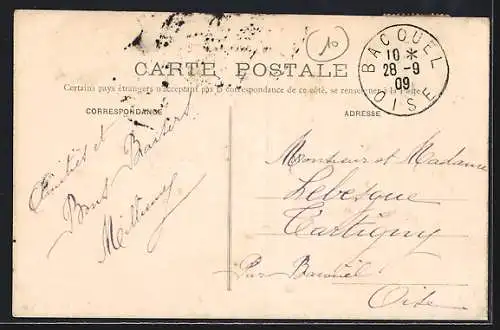 10
CARTE POSTALE
BACOUEL
10 *
28 - 9
09
OISE
Certains pays étrangers n'acceptent pas la correspondance de ce côté, se renseigner à la Poste
CORRESPONDANCE
ADRESSE
Amitiés et
Bons Baisers
Monsieur et Madame
Lebesque
Tartigny
Par Bacouël
Oise